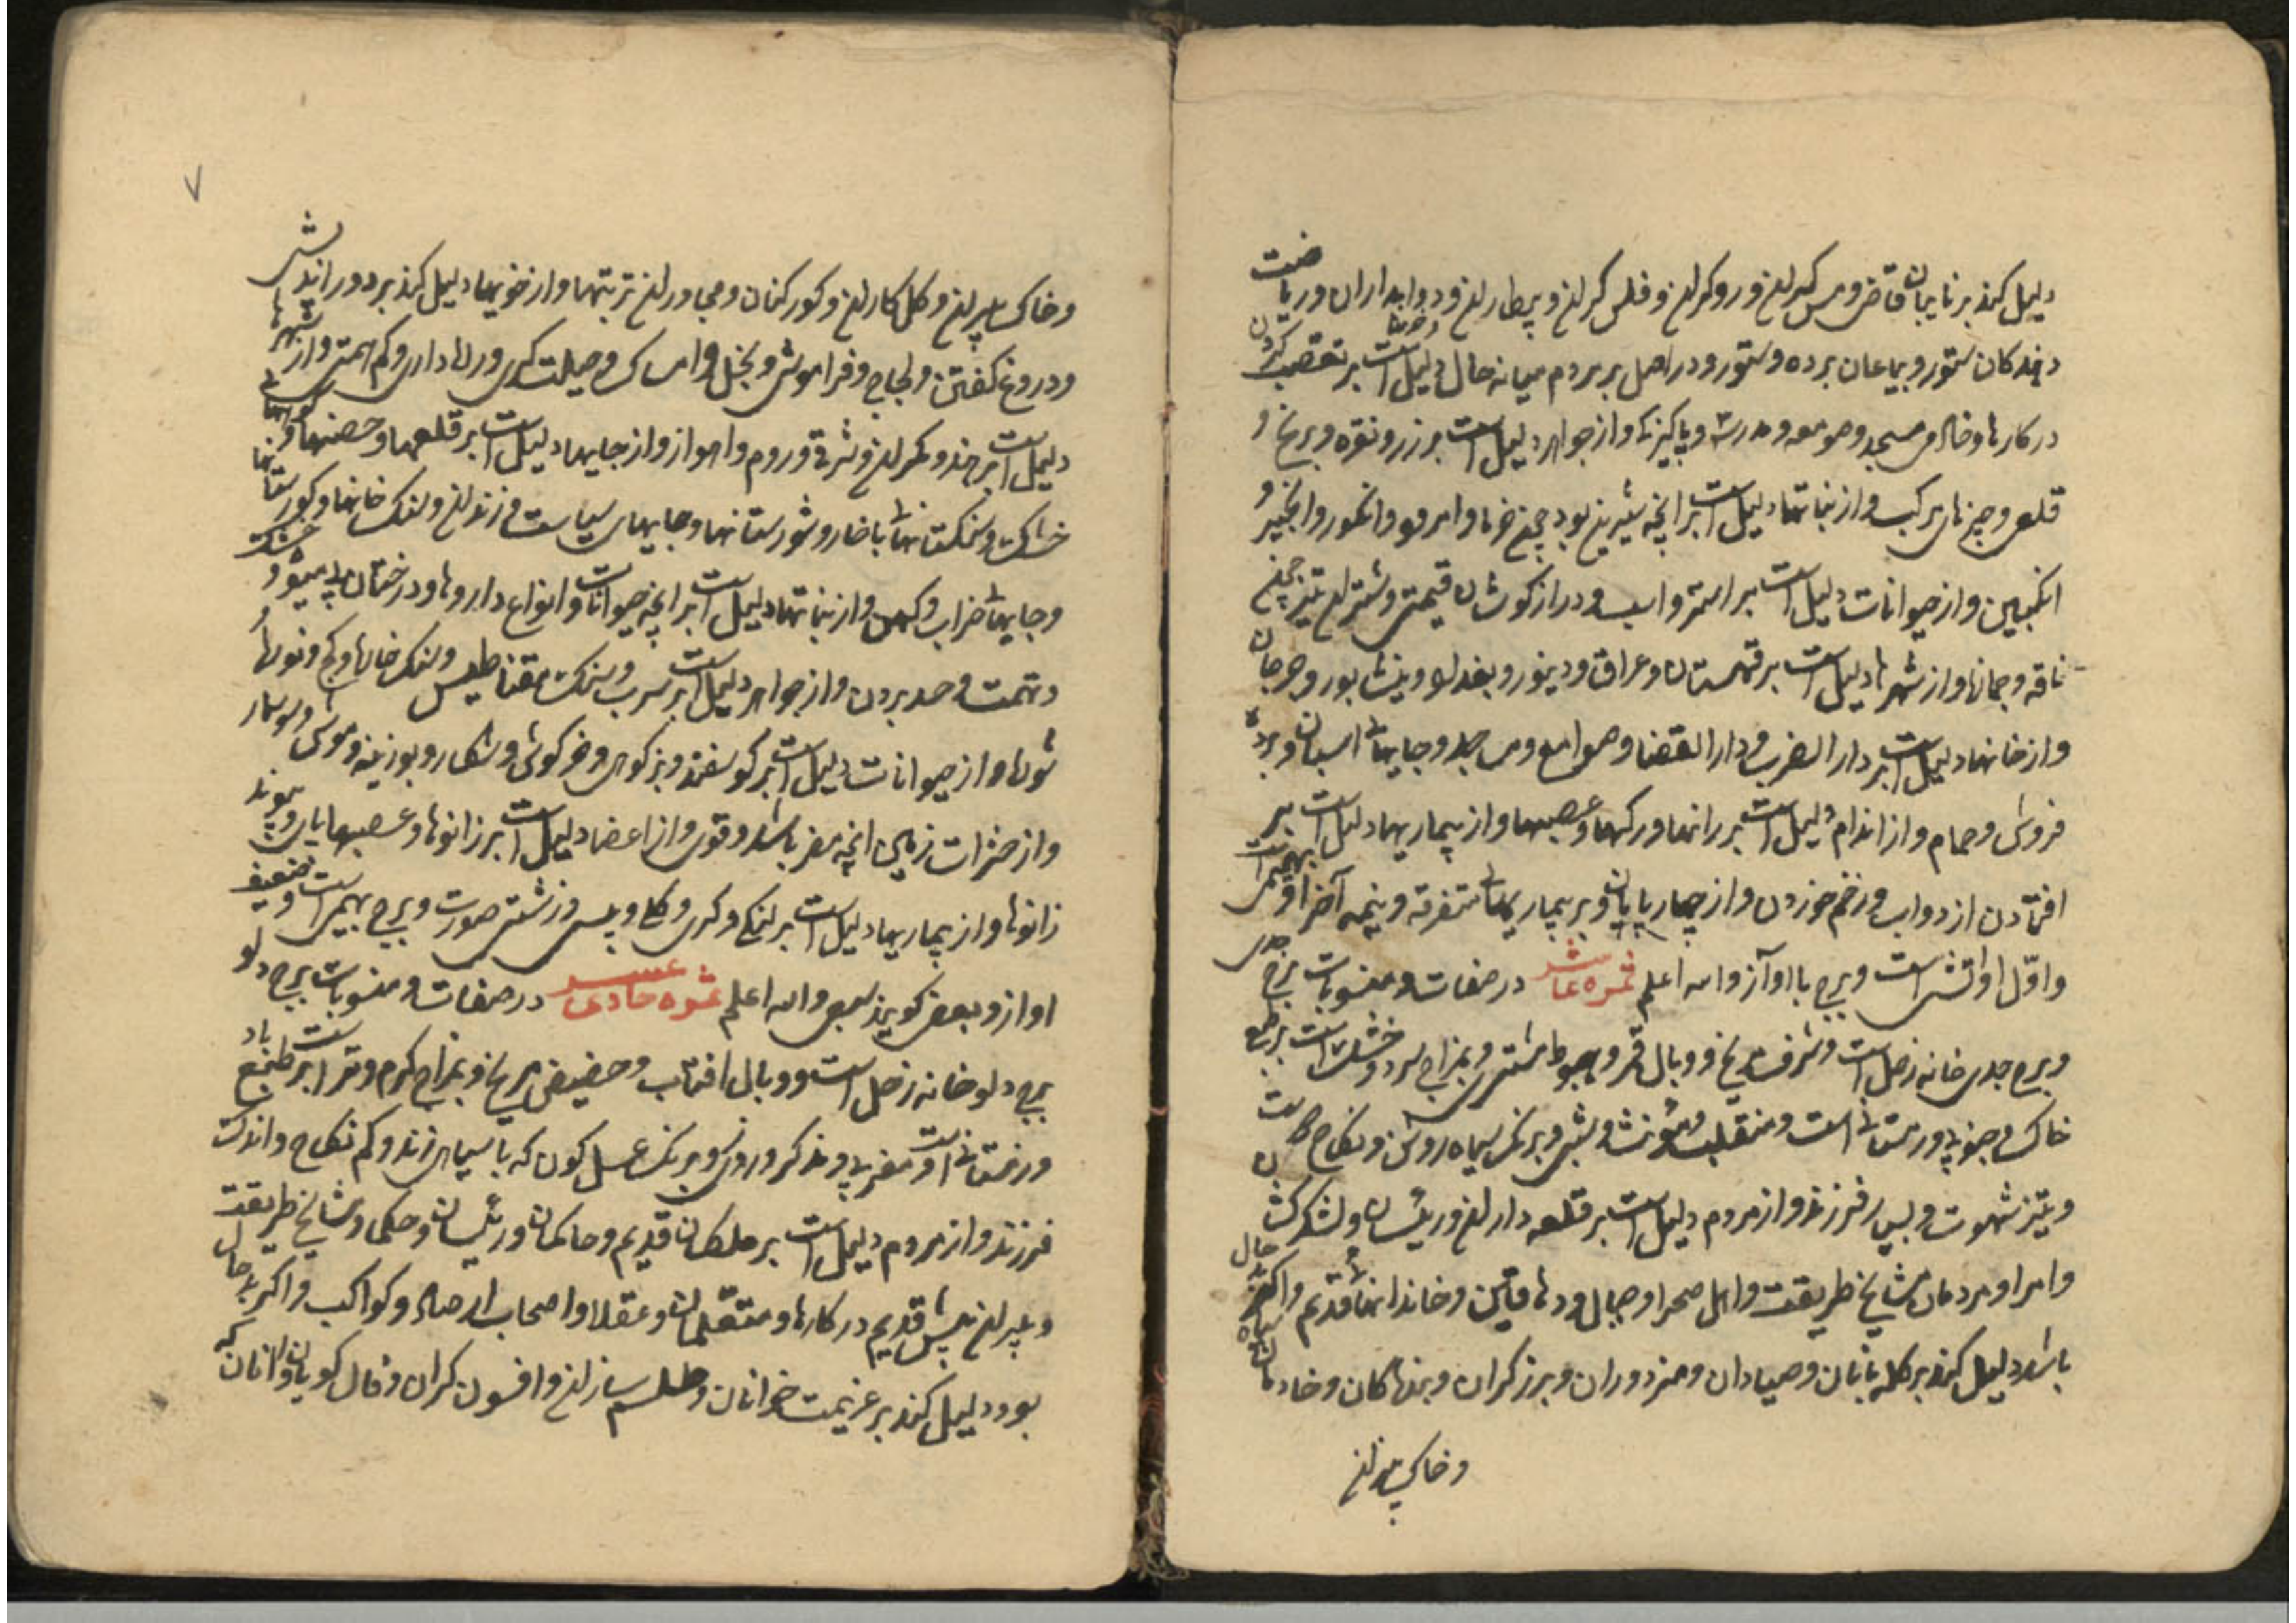 دلیل کند بر نایبان قاضی و مس کران و رو کران و فلس کران و پیطاران و دوابداران و ریاضت
دهندکان ستور و بیاعان برده و ستور و در اصل بر مردم میانه حال و دلیل است بر تعصب کردن
در کارها و خالی مسجد و صومعه و مدرسه و پاکیزکی و از جواهر دلیل است بر زر و نقره و برنج و
قلعی و چیزهای مرکب و از نباتها دلیل است بر انچه شیرین بود چون خرما و امرود و انکور و انجیر و
انکبین و از حیوانات دلیل است بر استر و اسب و دراز کوشان قیمتی و شتران تیز چون
ناقه و جمازه و از شهرها دلیل است بر قهستان و عراق و دینور و بغداد و نیشابور و جرجان
و از خانها دلیل است بر دار الضرب و دار القضا و صوامع و مساجد و جایهای اسبان و برده
فروش و حمام و از اندام دلیل است بر رانها و رکها و عصبها و از بیماریها دلیل است بر
افتادن از دواب و زخم خوردن و از چهارپایان و بر بیماریهای متفرقه و نیمه آخر او بهیمی است
و اول او آتشی است و برج با اواز و الله اعلم ثمره عاشر در صفات و منسوبات برج جدی
و برج جدی خانه زحل است و شرف مریخ و وبال قمر و هبوط مشتری و بمزاج سرد و خشک است بر طبع
خاک و جنوبی و زمستانی است و منقلب و مؤنث و شبی و برنک سیاه روشن و نکاح
و تیز شهوت و بسیار فرزند و از مردم دلیل است بر قلعه داران و رئیسان و لشکر کشان
و امرا و مردمان مشایخ طریقت و اهل صحرا و جبال و دهاقین و خاندانهای قدیم و اکثر حال
باشد دلیل کند بر کله بانان و صیادان و مزدوران و برزکران و بندکان و خادمان سیاه
و خاک بیزان
۷
و خاک بیزان و کل کاران و کور کنان و مجاوران تربتها و از خویها دلیل کند بر دور اندیشی
و دروغ کفتن و لجاج و فراموشی و بخل و امساک و حیلت کری و رازداری و کم همتی و از شهرها
دلیل است بر هند و مکران و شرق و روم و اهواز و از جایها دلیل است بر قلعها و حصنها و کوههای
خشک و سنکستانها با خار و شورستانها و جایهای سیاست و زندان و سنک خانها و کورستانها
و جایهای خراب و کهن و از نباتها دلیل است بر انچه حیوانات و انواع داروها و درختان بی میوه و خشک
و تهمت و حسد بردن و از جواهر دلیل است بر سرب و سنک مقناطیس و سنک خارا و کج و
شورها و از حیوانات دلیل است بر کوسفند و بز کوهی و خرکوش و شکار و بوزینه و موش و سوسمار
و از حشرات زمین انچه مضر باشد و قوی و از اعضا دلیل است بر زانوها و عصبها پای و پیوند
زانوها و از بیماریها دلیل است بر لنکی و کری و کلی و پیسی و زشتی صورت و برج بهیمی است و ضعیف
اواز و بعضی کویند سبعی و الله اعلم ثمره حادی عشر در صفات و منسوبات برج دلو
برج دلو خانه زحل است و وبال افتاب و حضیض مریخ و بمزاج کرم و تر است بر طبع باد
و زمستانی است و مغربی و مذکر و روزی و برنک عسل کون که با سیاهی زند و کم نکاح و اندک
فرزند و از مردم دلیل است بر ملکان قدیم و حاکمان و رئیسان و حکما و مشایخ طریقت
و پیران پیش قدیم در کارها و متقدمان و عقلا و اصحاب ارصاد و کواکب و اکر بد حال
بود دلیل کند بر عزیمت خوانان و طلسم سازان و افسون کران و فال کویان و انان که